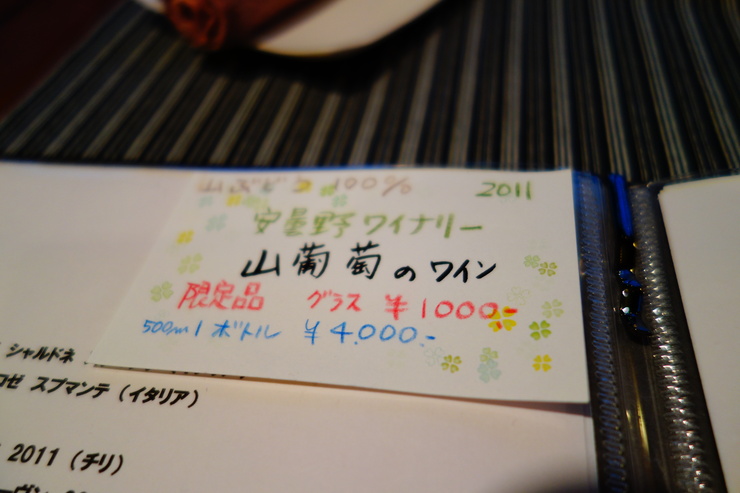 山ぶどう 100% 2011
安曇野ワイナリー
山葡萄のワイン
限定品 グラス ¥1000-
500ml ボトル ¥4,000.-
シャルドネ
ロゼ スプマンテ（イタリア）
2011（チリ）